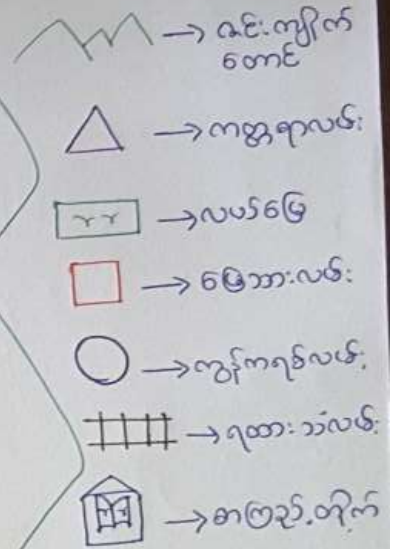 → ဇင်းကျိုက်
တောင်
→ ကတ္တရာလမ်း
→ လယ်မြေ
→ မြေသားလမ်း
→ ကွန်ကရစ်လမ်း
→ ရထားသံလမ်း
→ စာကြည့်တိုက်